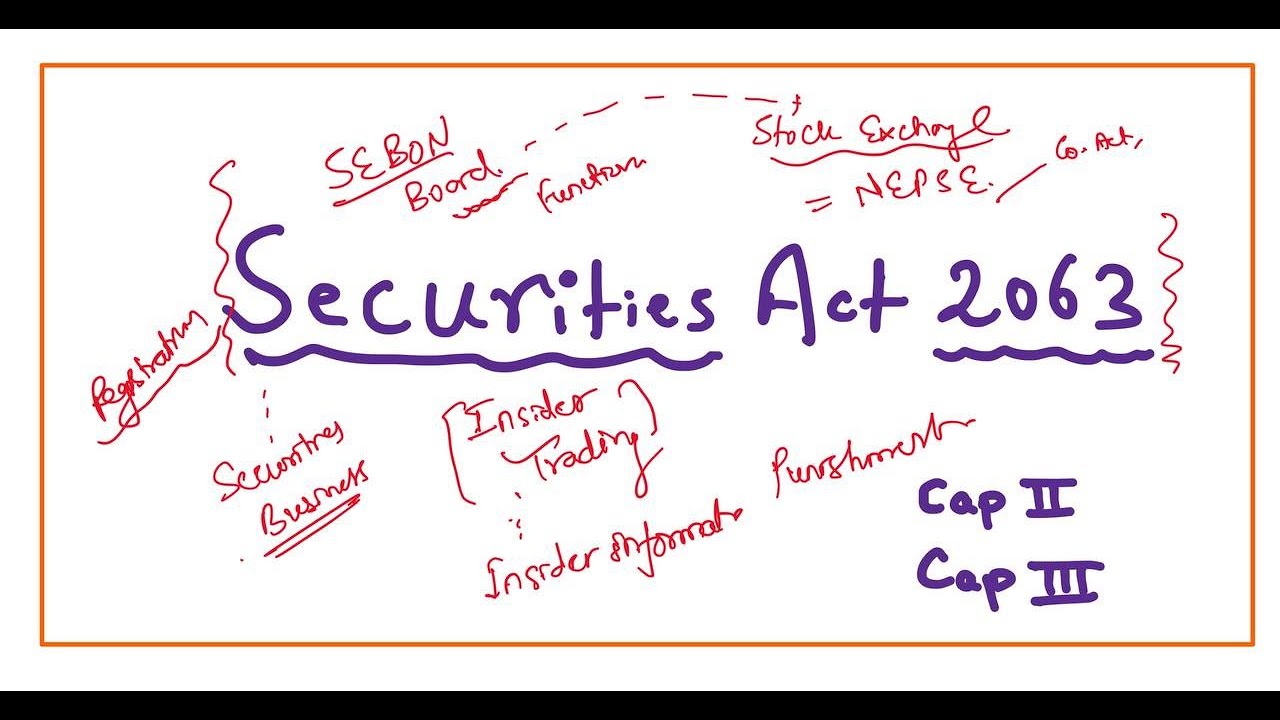 SEBON
Board.
Function
Stock Exchange
= NEPSE.
Co. Act,
Securities Act 2063
Registration
Securities
Business
[Insider
Trading]
Insider informat
Punishment
Cap II
Cap III